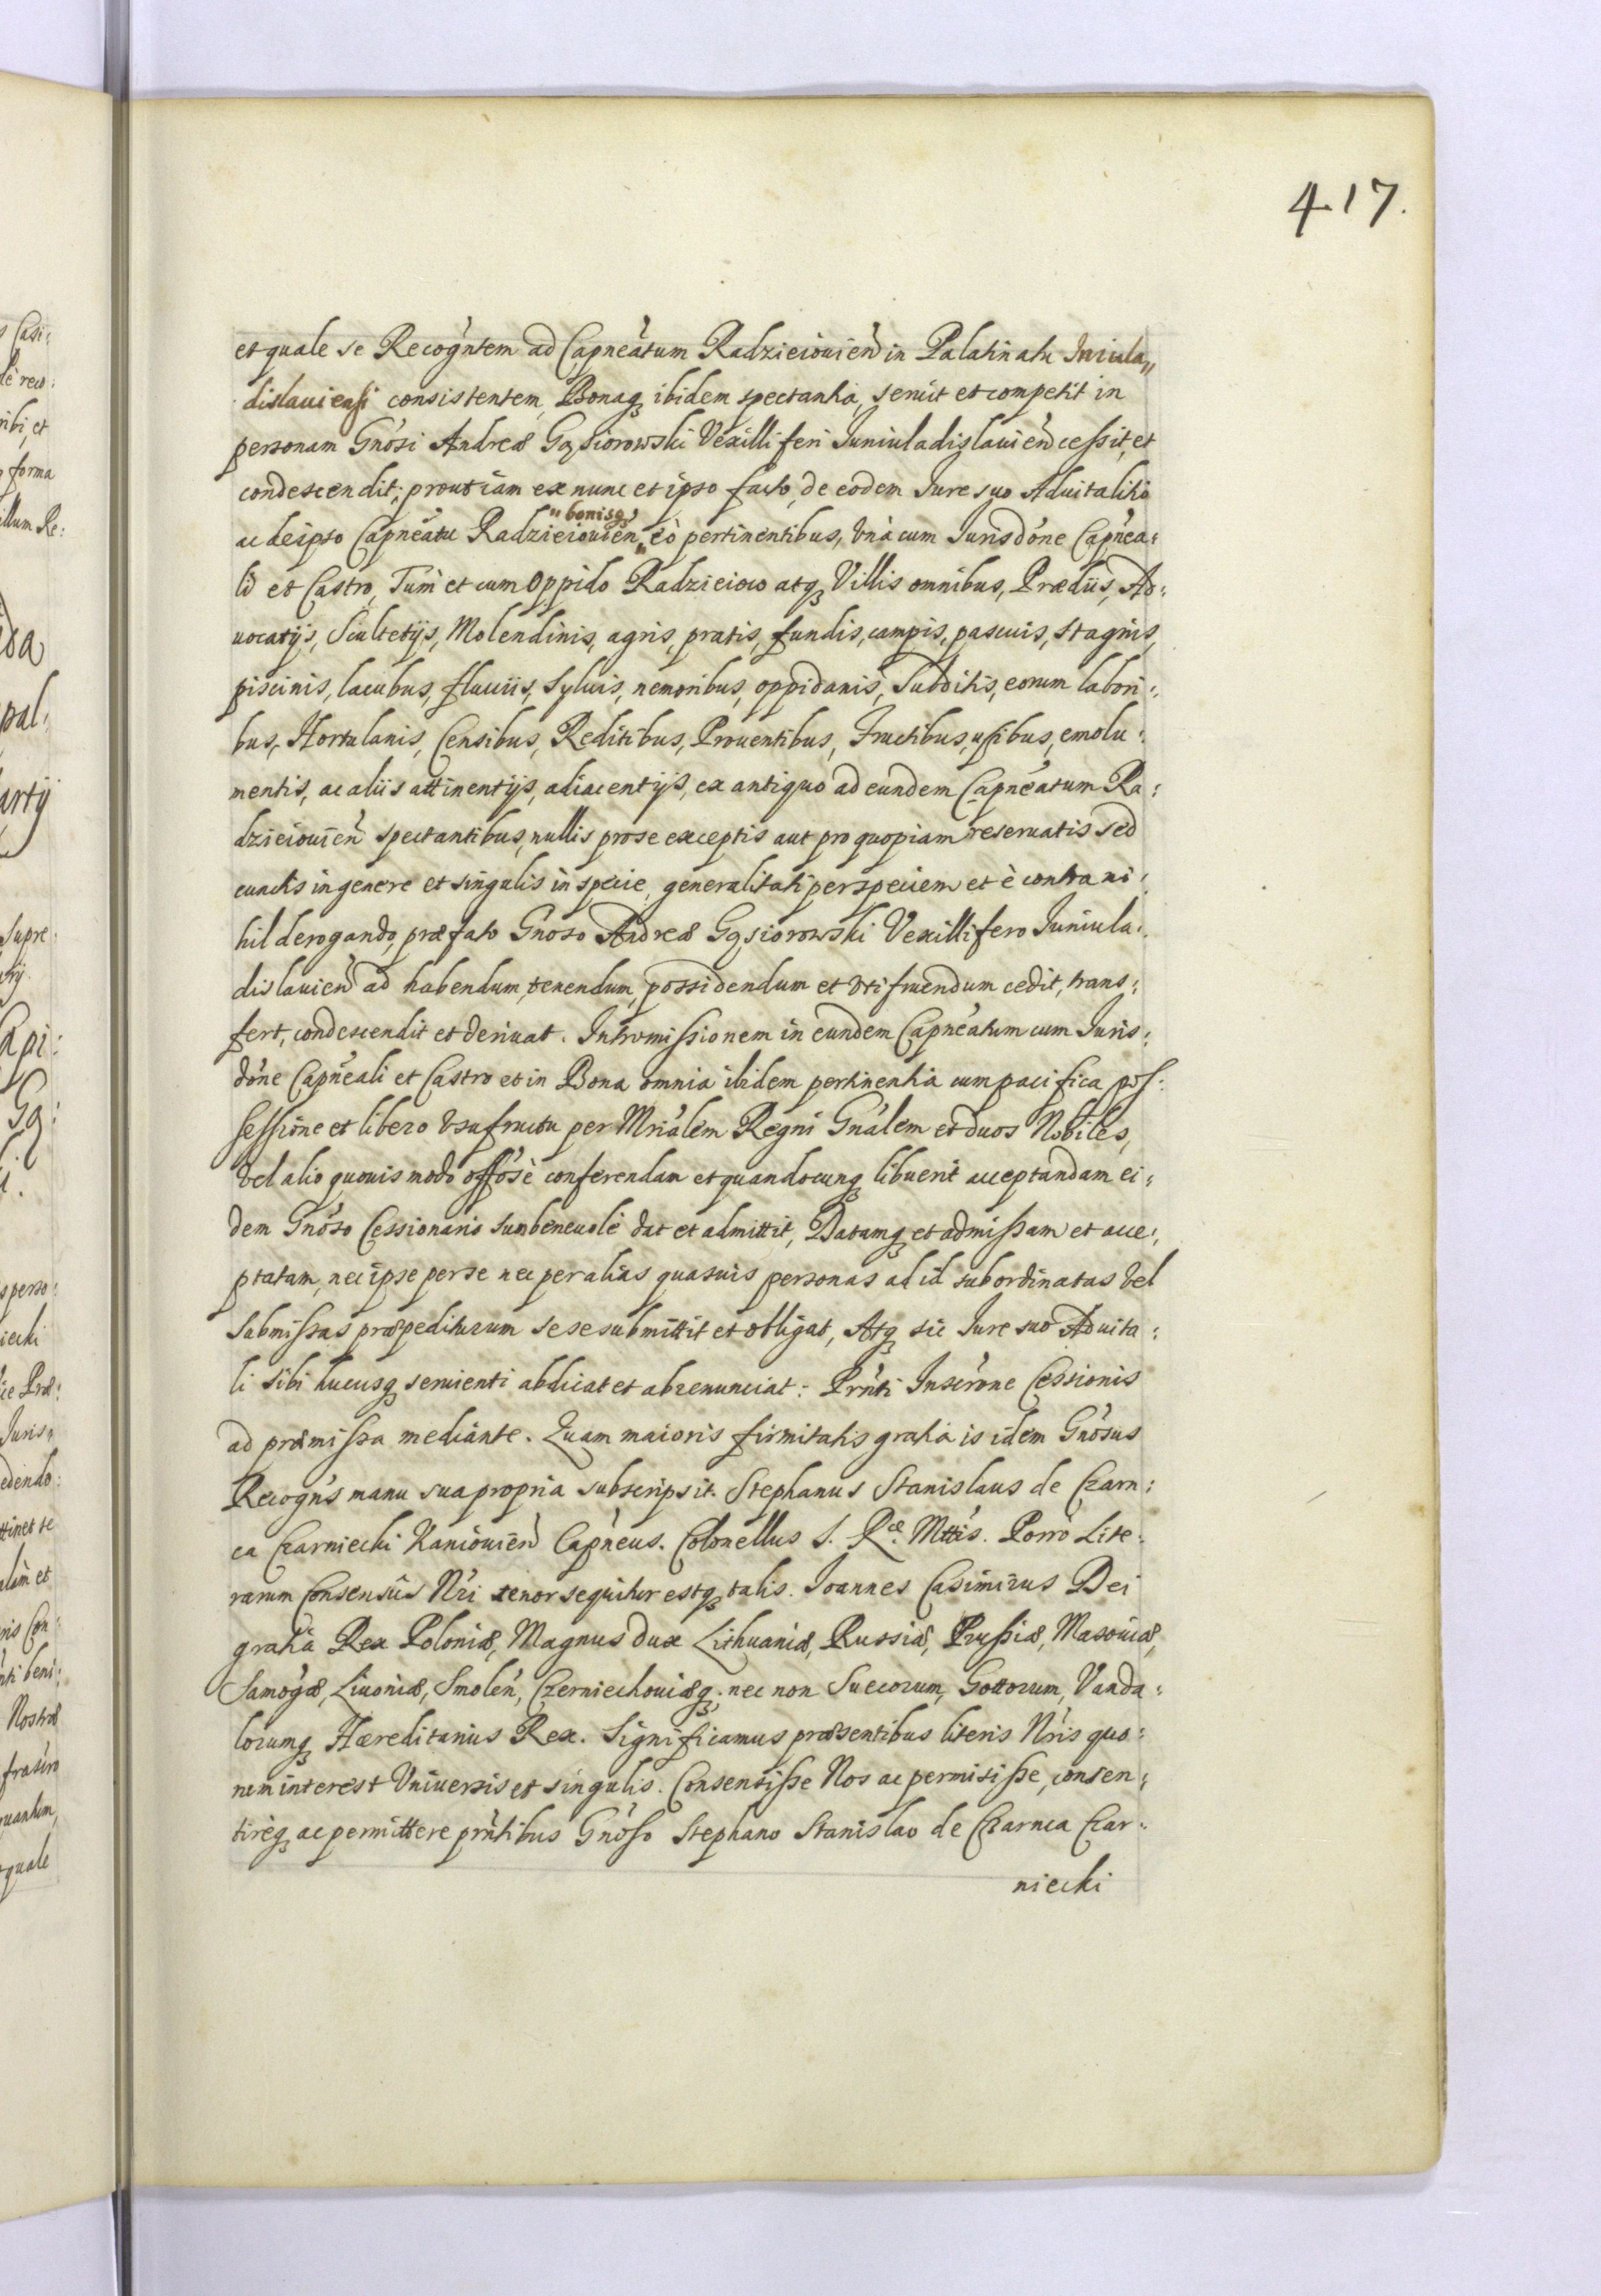 417.
et quale se Recogñtem ad Capñeatum Radzieiouień in Palatinatu Iuniula„
dislauiensi consistentem, Bonaq3 ibidem spectantia, seruit et competit in
personam Gnosi Andreæ Gąsiorowski Vexilliferi Iuniuladislauień cessit, et
condescendit; prout iam ex nunc et ipso facto, de eodem Iure suo Aduitalitio
ac de ipso Capñeatu Radzieiouień „bonisq3 eò pertinentibus, vnà cum Iurisdóne Capñea:
li et Castro, Tum et cum Oppido Radzieiow atq3 Villis omnibus, Prædiis, Ad:
uocatijs, Scultetijs, Molendinis, agris, pratis, fundis, campis, pascuis, stagnis,
piscinis, lacubus, fluuiis, syluis, nemoribus, oppidanis, Subditis, eorum labori:
bus, Hortulanis, Censibus, Reditibus, Prouentibus, Fructibus, usibus, emolu:
mentis, ac aliis attinentijs, adiacentijs, ex antiquo ad eundem Capñeatum Ra:
dzieiouień spectantibus, nullis pro se exceptis aut pro quopiam reseruatis sed
cunctis in genere et singulis in specie, generalitati per speciem et è contra ni:
hil derogando, præfato Gnoso Andreæ Gąsiorowski Vexillifero Iuniula:
dislauień ad habendum, tenendum, possidendum et vtifruendum cedit, trans:
fert, condescendit et deriuat. Intromissionem in eundem Capñeatum cum Iuris:
dóne Capñeali et Castro et in Bona omnia ibidem pertinentia cum pacifica pos:
sessione et libero vsufructu per Mriálem Regni Gnálem et duos Nobiles,
vel alio quouis modo offósè conferendam et quandocunq3 libuerit acceptandam ei:
dem Gnóso Cessionario suo beneuolè dat et admittit, Datamq3 et admissam et acce:
ptatam, nec ipse per se nec per alias quasuis personas ad id subordinatas vel
submissas præpediturum sese submittit et obligat, Atq3 sic Iure suo Aduita:
li sibi hucusq3 seruienti abdicat et abrenunciat: Prñti Inscróne Cessionis
ad præmissa mediante. Quam maioris firmitatis gratia is idem Gnósus
Recogñs manu sua propria subscripsit. Stephanus Stanislaus de Czarn:
ca Czarniecki Kaniouień Capñeus. Colonellus S. Ræ. Mttis. Porrò Lite:
rarum Consensûs Nri tenor sequitur estq3 talis. Ioannes Casimirus Dei
gratia Rex Poloniæ, Magnus dux Lithuaniæ, Russiæ, Prussiæ, Masouiæ,
Samogæ, Liuoniæ, Smoleń, Czerniechouiæq3; nec non Suecorum, Gottorum, Vanda:
lorumq3 Hæreditarius Rex. Significamus præsentibus literis Nris quo:
rum interest Vniuersis et singulis. Consensisse Nos ac permisisse, consen:
tireq3 ac permittere prñtibus Gnóso Stephano Stanislao de Czarnca Czar:
niecki